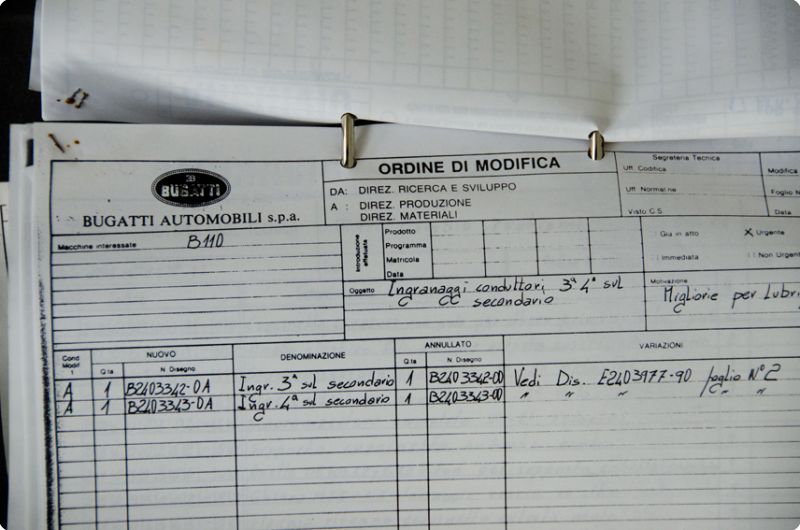 BUGATTI
BUGATTI AUTOMOBILI s.p.a.
ORDINE DI MODIFICA
DA: DIREZ. RICERCA E SVILUPPO
A : DIREZ. PRODUZIONE
DIREZ. MATERIALI
Segreteria Tecnica
Uff. Codifica
Uff. Normazione
Visto C.S.
Modifica
Foglio N
Data
Macchine interessate B110
Introduzione effettuata
Prodotto
Programma
Matricola
Data
Gia in atto
X Urgente
Immediata
Non Urgen
Oggetto Ingranaggi conduttori 3ª 4ª sul
secondario
Motivazione
Migliorie per Lubri
Cond Modif 1
NUOVO
Q.ta
N. Disegno
DENOMINAZIONE
ANNULLATO
Q.ta
N. Disegno
VARIAZIONI
A 1 B2403342-0A Ingr. 3ª sul secondario 1 B2403342-00 Vedi Dis. E2403977-90 foglio N°2
A 1 B2403343-0A Ingr. 4ª sul secondario 1 B2403343-00 " " " " "